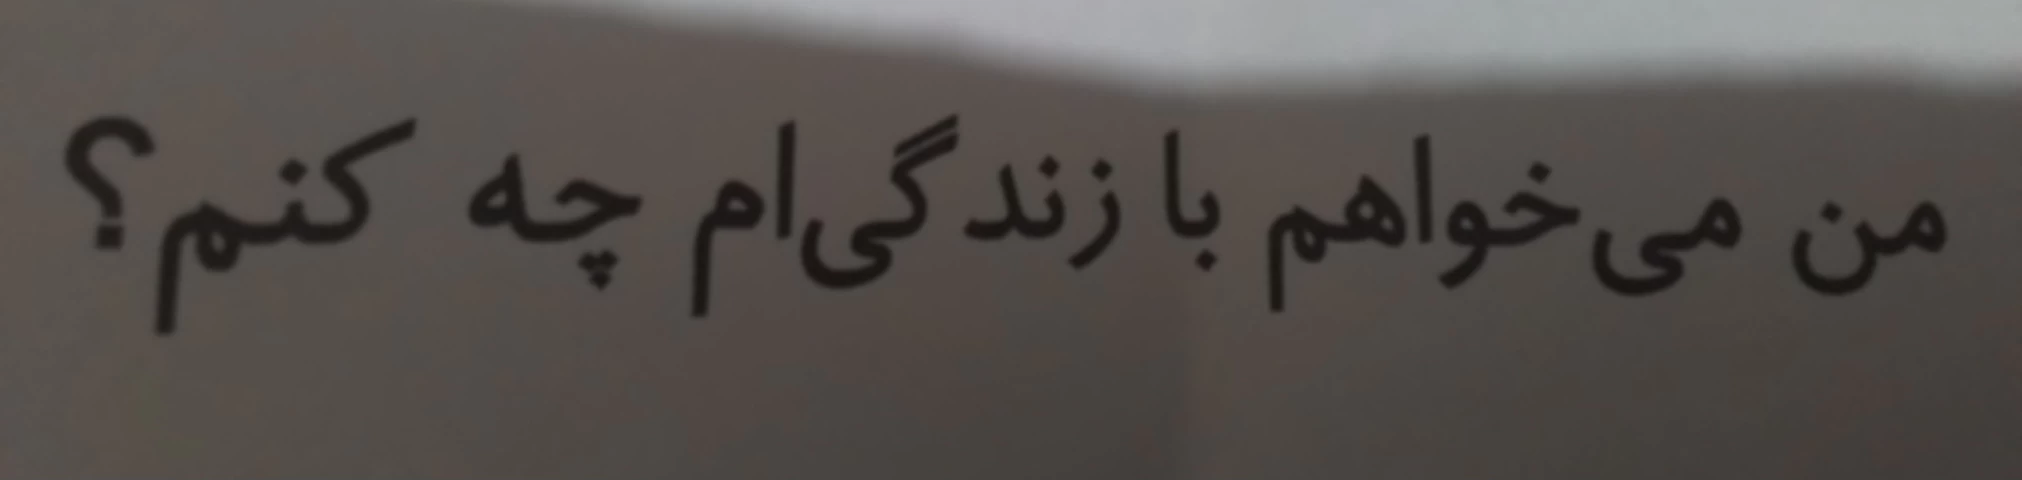 من می‌خواهم با زندگی‌ام چه کنم؟